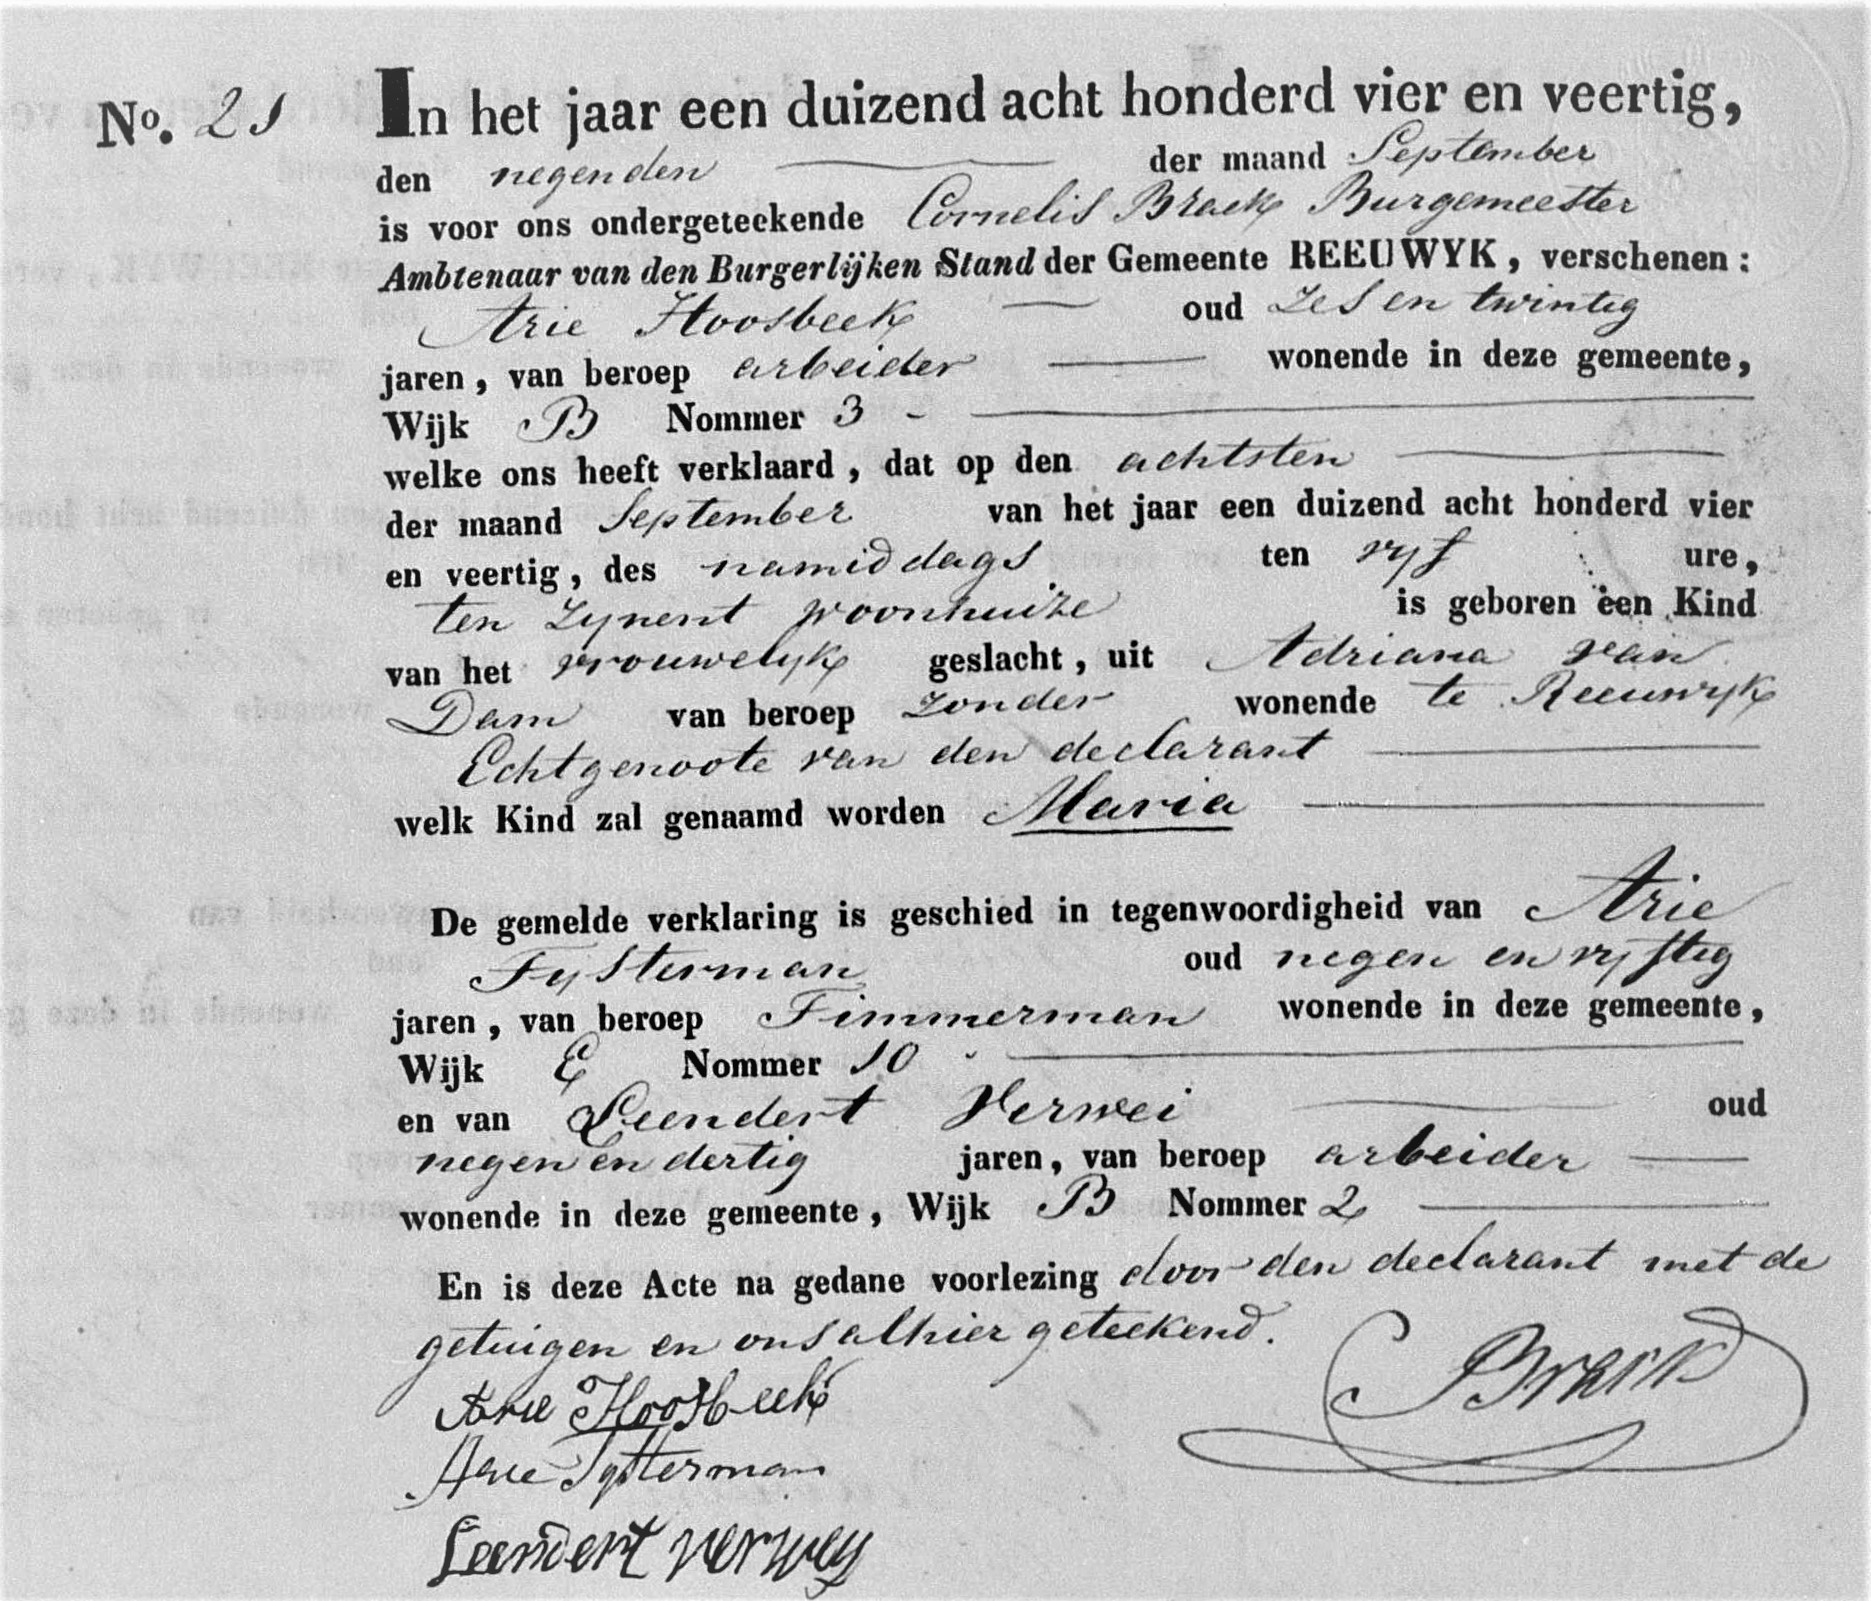 No. 21
In het jaar een duizend acht honderd vier en veertig,
den negenden der maand September
is voor ons ondergeteekende Cornelis Brack Burgemeester
Ambtenaar van den Burgerlijken Stand der Gemeente REEUWYK, verschenen:
Arie Hoosbeek oud zes en twintig
jaren, van beroep arbeider wonende in deze gemeente,
Wijk B Nommer 3
welke ons heeft verklaard, dat op den achtsten
der maand September van het jaar een duizend acht honderd vier
en veertig, des namiddags ten vyf ure,
ten zynent woonhuize is geboren een Kind
van het vrouwelyk geslacht, uit Adriana van
Dam van beroep zonder wonende te Reeuwyk
Echtgenoote van den declarant
welk Kind zal genaamd worden Maria
De gemelde verklaring is geschied in tegenwoordigheid van Arie
Tysterman oud negen en vyftig
jaren, van beroep Timmerman wonende in deze gemeente,
Wijk E Nommer 10
en van Leendert Verwei oud
negen en dertig jaren, van beroep arbeider
wonende in deze gemeente, Wijk B Nommer 2
En is deze Acte na gedane voorlezing door den declarant met de
getuigen en ons alhier geteekend.
CBrack
Arie Hoosbeek
Arie Tysterman
Leendert verwey